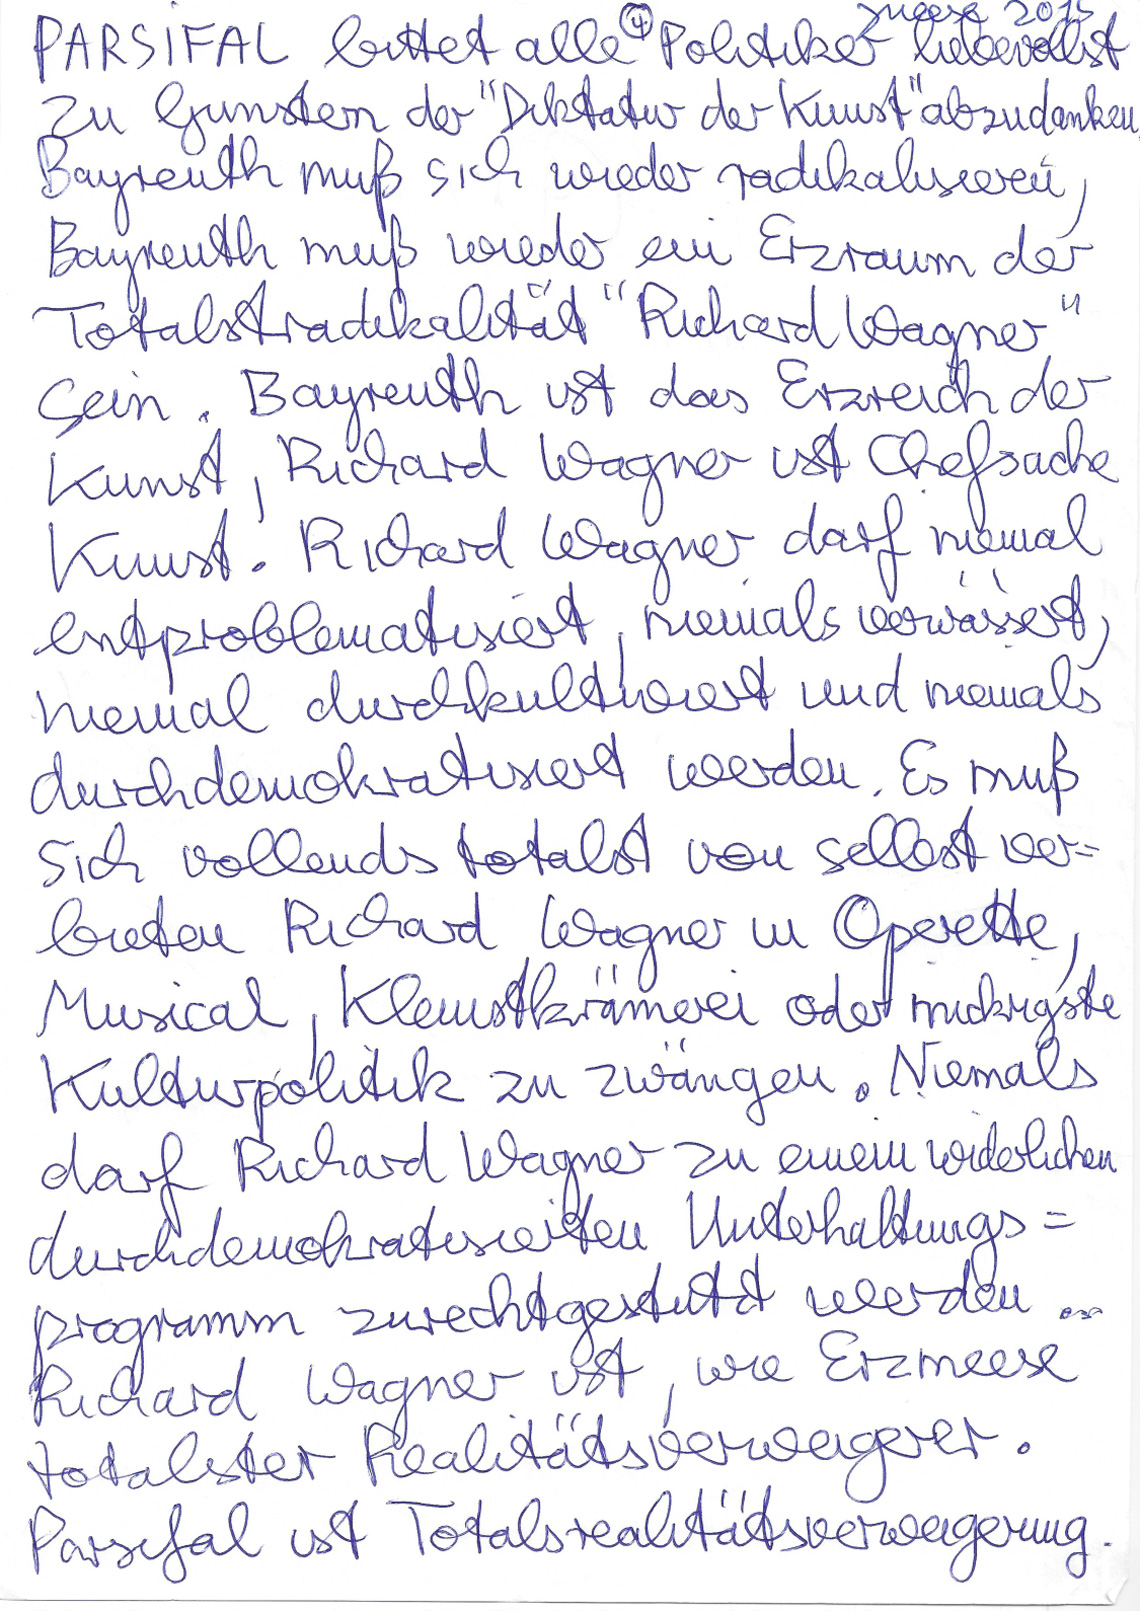 ④ JMeese 2015
PARSIFAL bittet alle Politiker liebevollst
zu Gunsten der "Diktatur der Kunst" abzudanken,
Bayreuth muß sich wieder radikalisieren,
Bayreuth muß wieder ein Erzraum der
Totalstradikalität "Richard Wagner"
sein. Bayreuth ist das Erzreich der
Kunst, Richard Wagner ist Chefsache
Kunst. Richard Wagner darf niemal
entproblematisiert, niemals verwässert,
niemal durchkultiviert und niemals
durchdemokratisiert werden. Es muß
sich vollends totalst von selbst ver=
bieten Richard Wagner in Operette,
Musical, Kleinstkrämerei oder mickrigste
Kulturpolitik zu zwängen. Niemals
darf Richard Wagner zu einem widerlichen
durchdemokratisierten Unterhaltungs=
programm zurechtgestutzt werden ...
Richard Wagner ist, wie Erzmeese
totalster Realitätsverweigerer.
Parsifal ist Totalsrealitätsverweigerung.